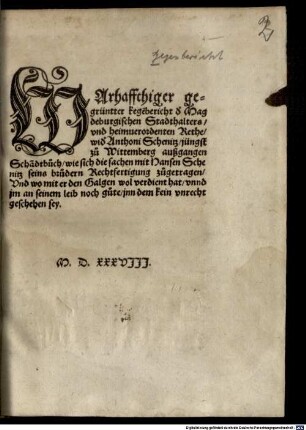 Gegenbericht
WArhafftiger ge-
grüntter kegēbericht d' Mag
deburgischen Stadthalters/
vnd heimuerordenten Rethe/
wid' Anthoni Schenitz/jüngst
zů Wittemberg außgangē
Schādtbůch/wie sich die sachen mit Hansen Sche
nitz seins brůdern Rechtfertigung zůgetragen/
Vnd wo mit er den Galgen wol verdient hat/vnnd
jm an seinem leib noch gůte/jnn dem kein vnrecht
geschehen sey.
M. D. XXXVIII.